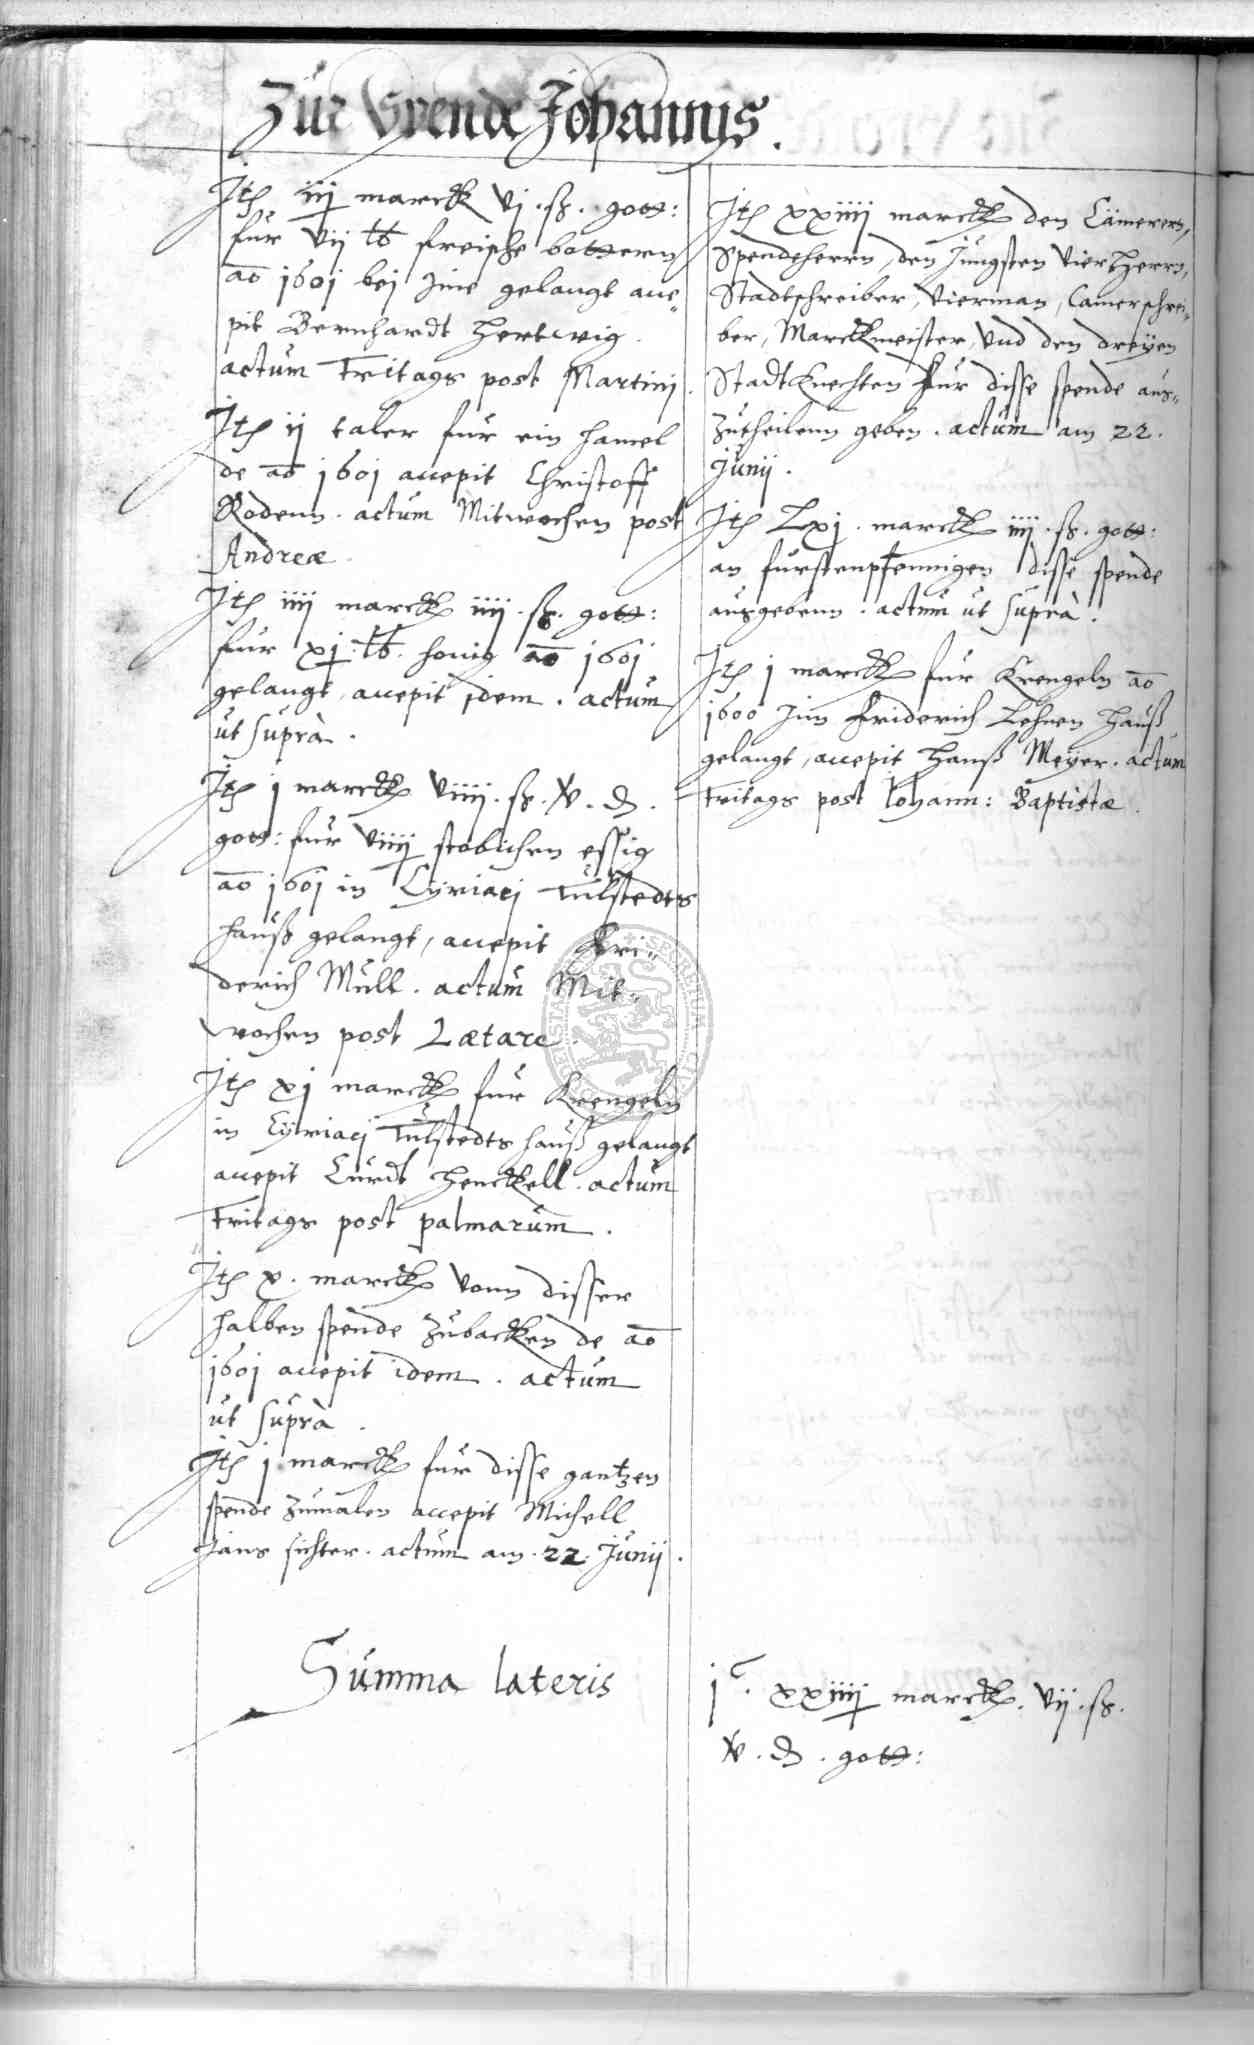 Zur Spende Johannis.
Jtem iij marck vj. ß. gott:
fur vij lb freische bottern
ao 1601 bej Jme gelangt acce„
pit Bernhardt Hertwig.
actum Fritags post Martinj.
Jtem ij taler fur ein hamel
de ao 1601 accepit Christoff
Rodenn. actum Mitwochen post
Andreæ.
Jtem iiij marck iiij. ß. gott:
fur xj. lb. honig ao 1601
gelangt, accepit idem. actum
ut suprà.
Jtem j marck viiij. ß. x. d.
gott: fur viiij stobichen essig
ao 1601 in Cÿriacj Tulstedts
hauß gelangt, accepit Fri„
derich Mull. actum Mit„
wochen post Lætare.
Jtem xj marck fur Krengeln
in Cÿriacj Tulstedts hauß gelangt
accepit Curdt Henckell. actum
Fritags post palmarum.
Jtem x. marck vonn disser
halben spende zubacken de ao
1601 accepit idem. actum
ut suprà.
Jtem j marck fur disse gantzen
spende zumalen accepit Michell
actum am. 22. Junij.
Jtem xxiiij marck den Cämerern,
Spendeherrn, den Jungsten Vierherrn,
Stadtschreiber, Vierman, Camerschrei„
ber, Marckmeister, und den dreÿen
Stadtknechten fur disse spende aus„
zutheilenn geben. actum am 22.
Junij.
Jtem Lxj. marck iiij. ß. gott:
an furstenpfennigen disse spende
ausgebenn. actum ut suprà.
Jtem j marck fur Krengeln ao
1600 Jnn Friderich Lehnen hauß
gelangt, accepit Hanß Meÿer. actum
Fritags post Iohann: Baptistæ.
Summa lateris
jc. xxiiij marck. vij. ß.
x. d. gott: